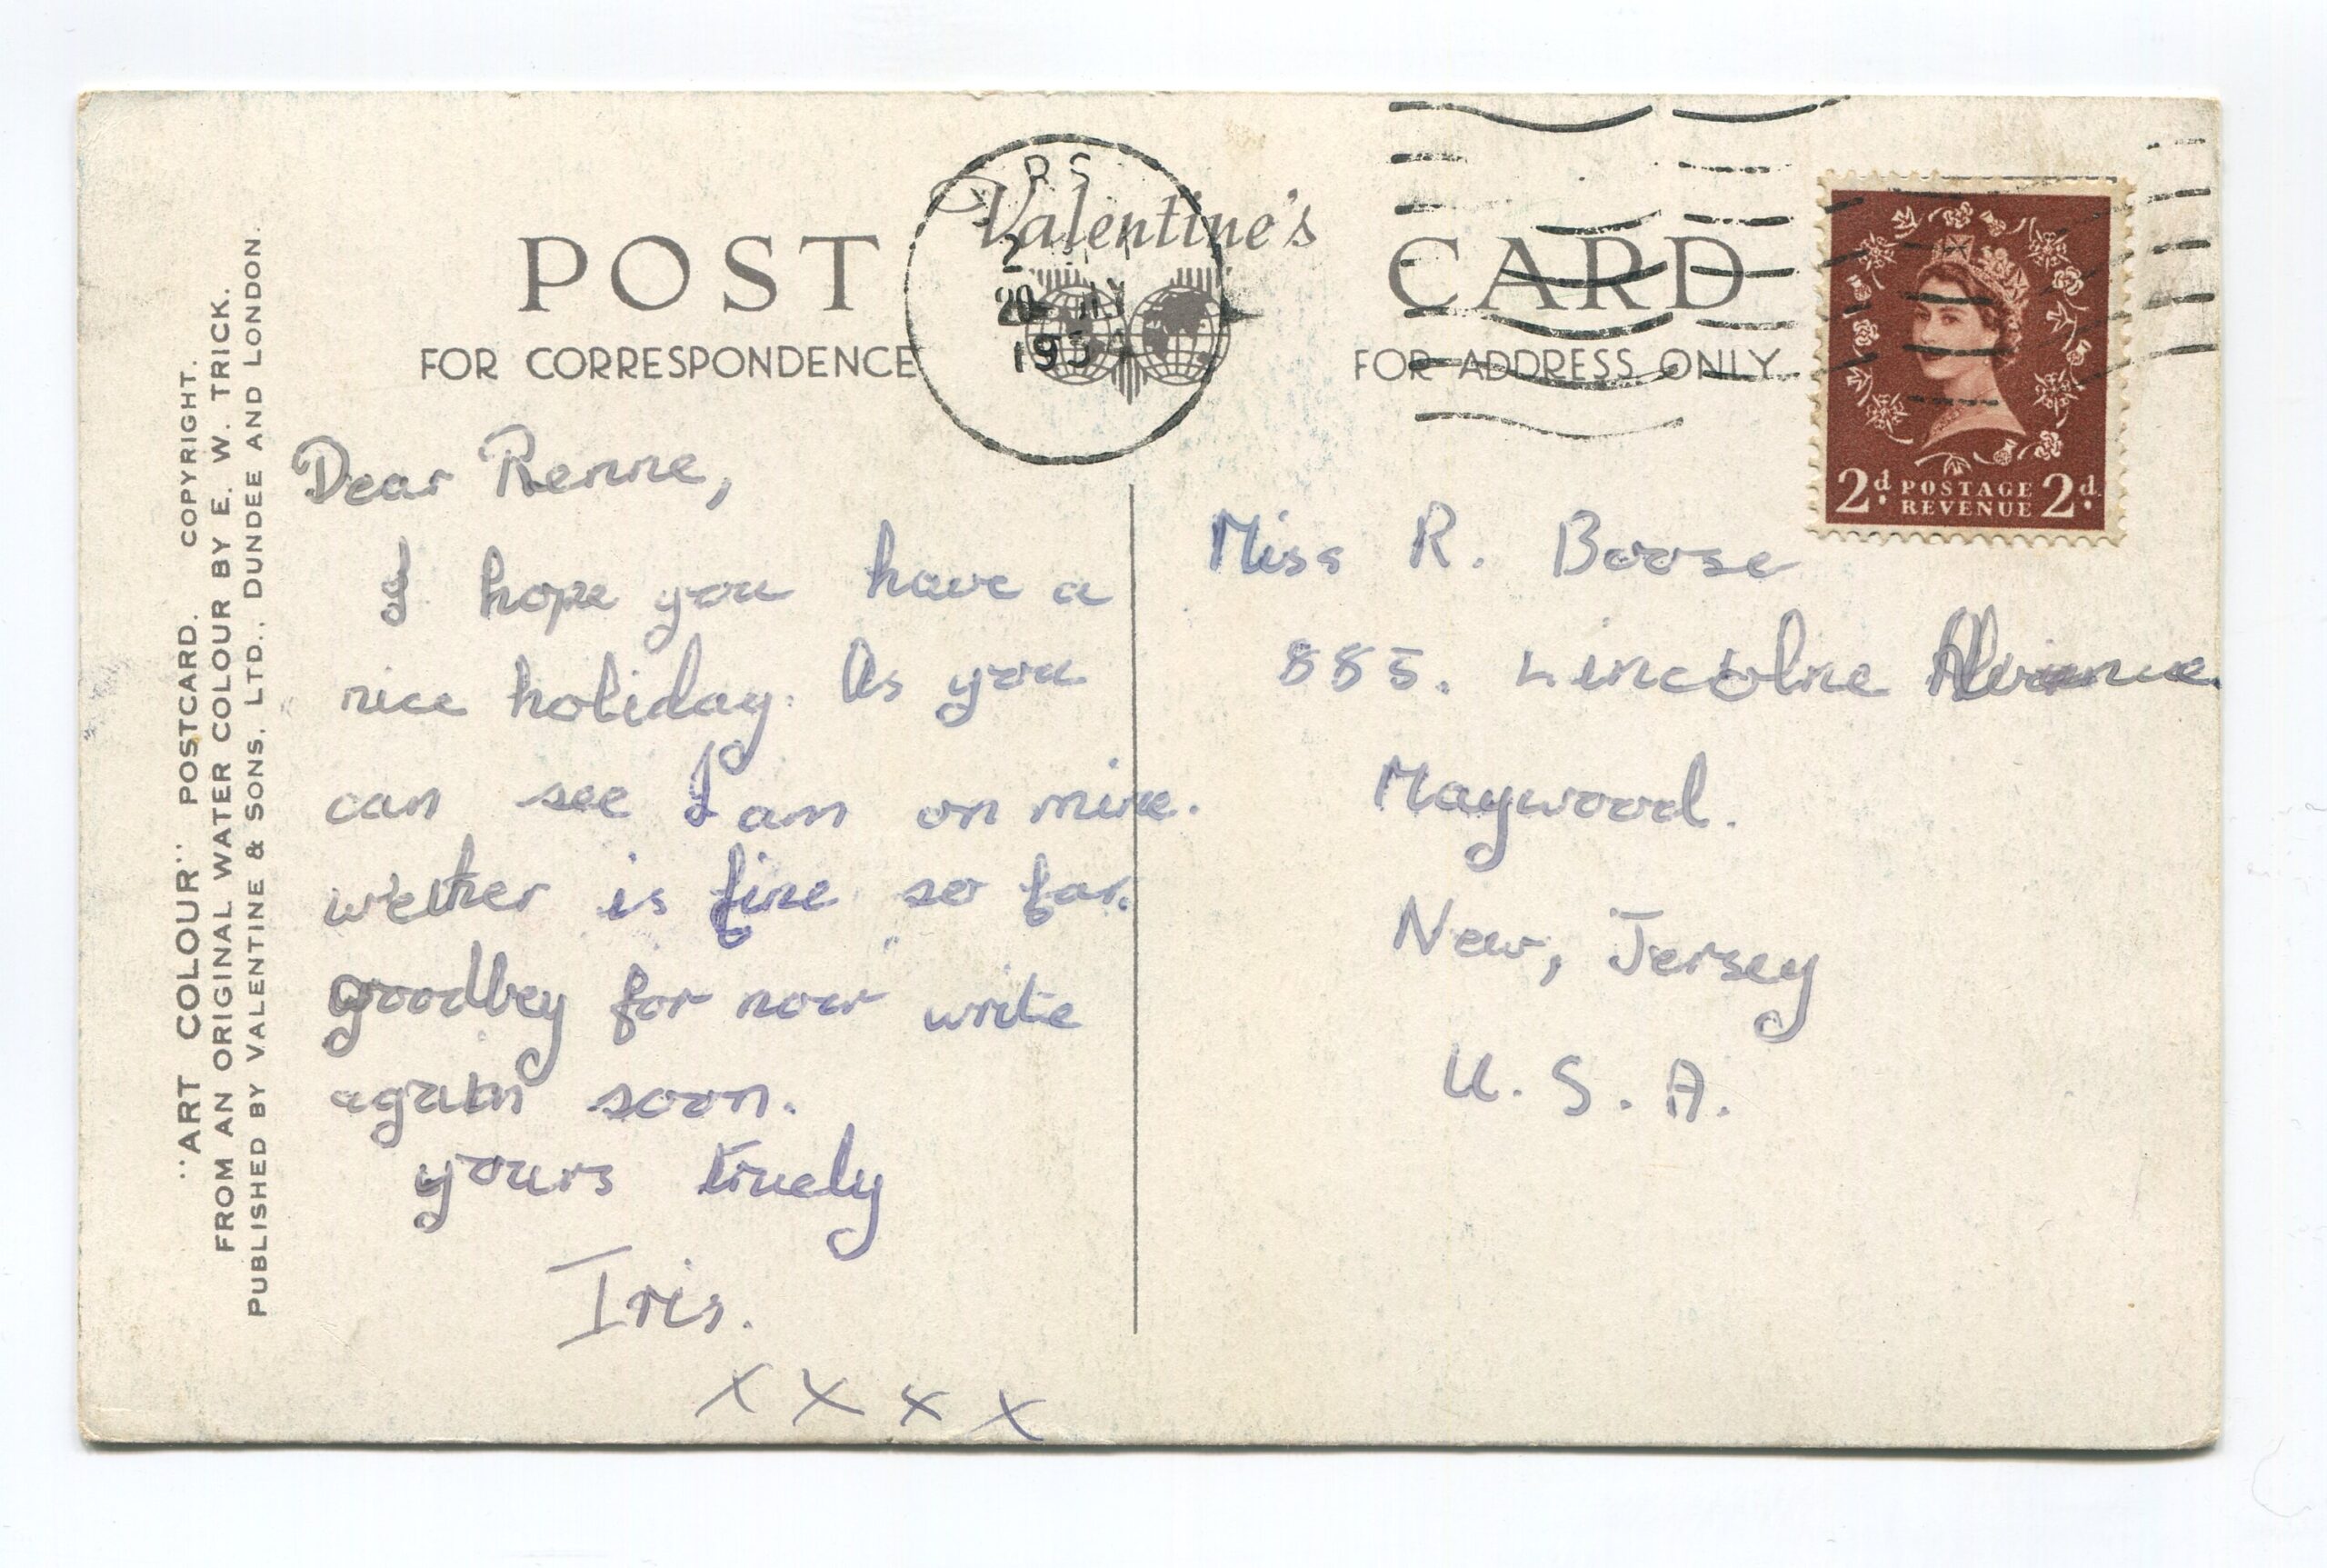 POST
Valentine's
CARD
FOR CORRESPONDENCE
FOR ADDRESS ONLY
20 JLY
195
2d. POSTAGE 2d.
REVENUE
"ART COLOUR" POSTCARD. COPYRIGHT.
FROM AN ORIGINAL WATER COLOUR BY E. W. TRICK.
PUBLISHED BY VALENTINE & SONS, LTD., DUNDEE AND LONDON.
Dear Renne,
I hope you have a
nice holiday. As you
can see I am on mine.
wether is fine so far.
goodbey for now write
again soon.
yours truely
Iris.
x x x x
Miss R. Boose
885. Lincolne Avenue.
Maywood.
New, Jersey
U. S. A.